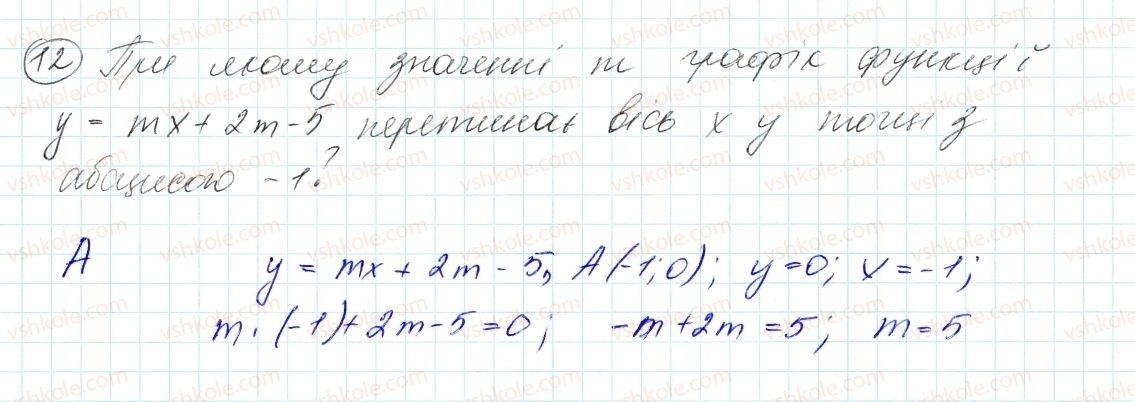 12 При якому значенні m графік функції
y = mx + 2m - 5 перетинає вісь x у точці з
абсцисою -1?
A y = mx + 2m - 5, A(-1; 0); y = 0; x = -1;
m · (-1) + 2m - 5 = 0; -m + 2m = 5; m = 5